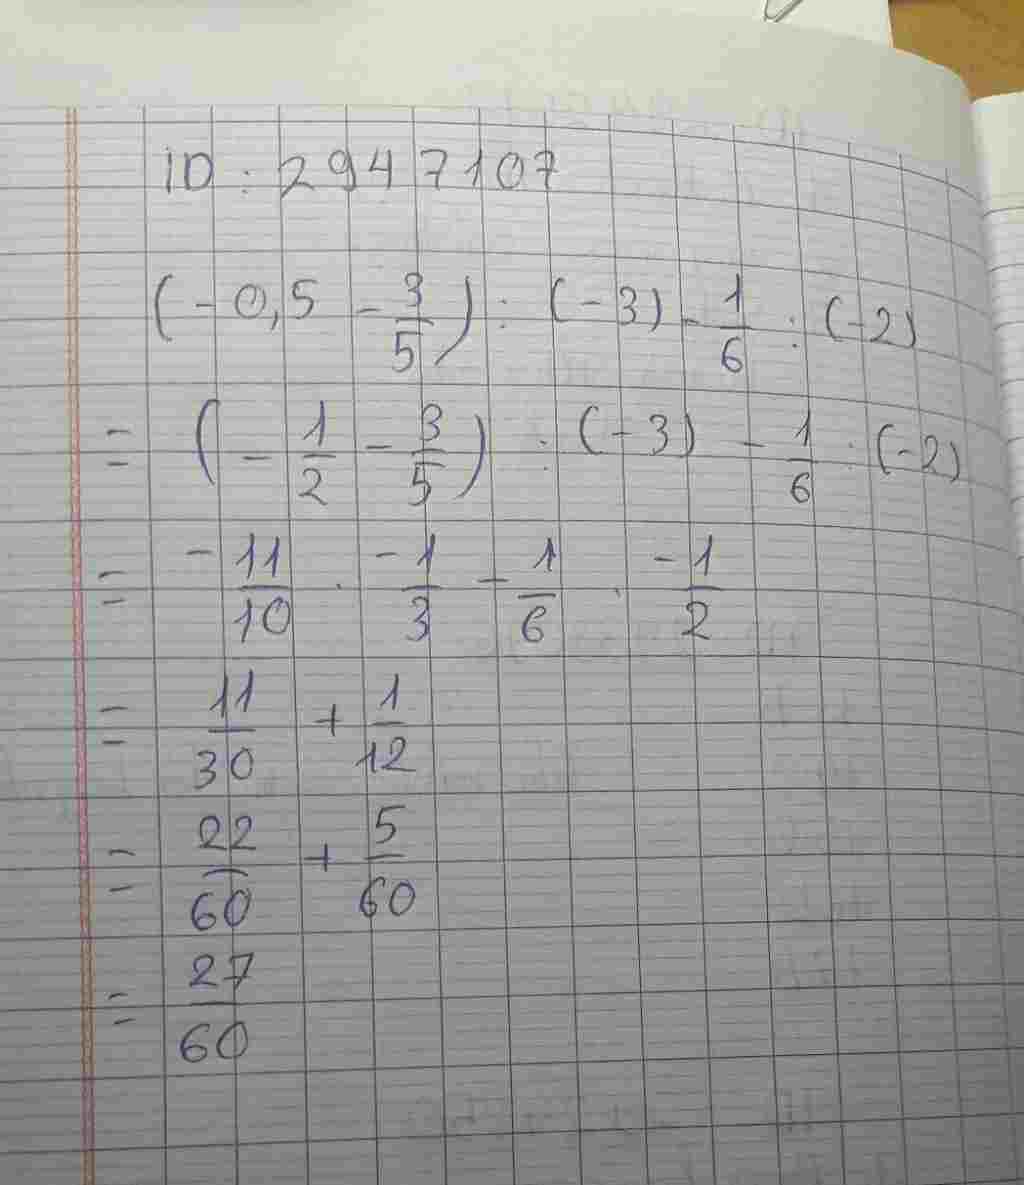 ID : 2947107
(-0,5 - 3/5) : (-3) - 1/6 : (-2)
= (-1/2 - 3/5) : (-3) - 1/6 : (-2)
= -11/10 . -1/3 - 1/6 . -1/2
= 11/30 + 1/12
= 22/60 + 5/60
= 27/60